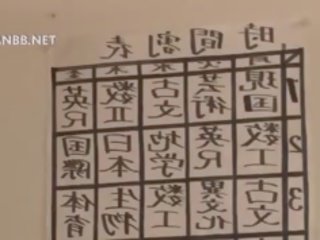 ANBB.NET
時間割表
1 現国 芸術 古文 数Ⅱ 英R
2 数Ⅰ 英R 地学 日本 国際
3 古文 異文化 数Ⅰ 生物 体育